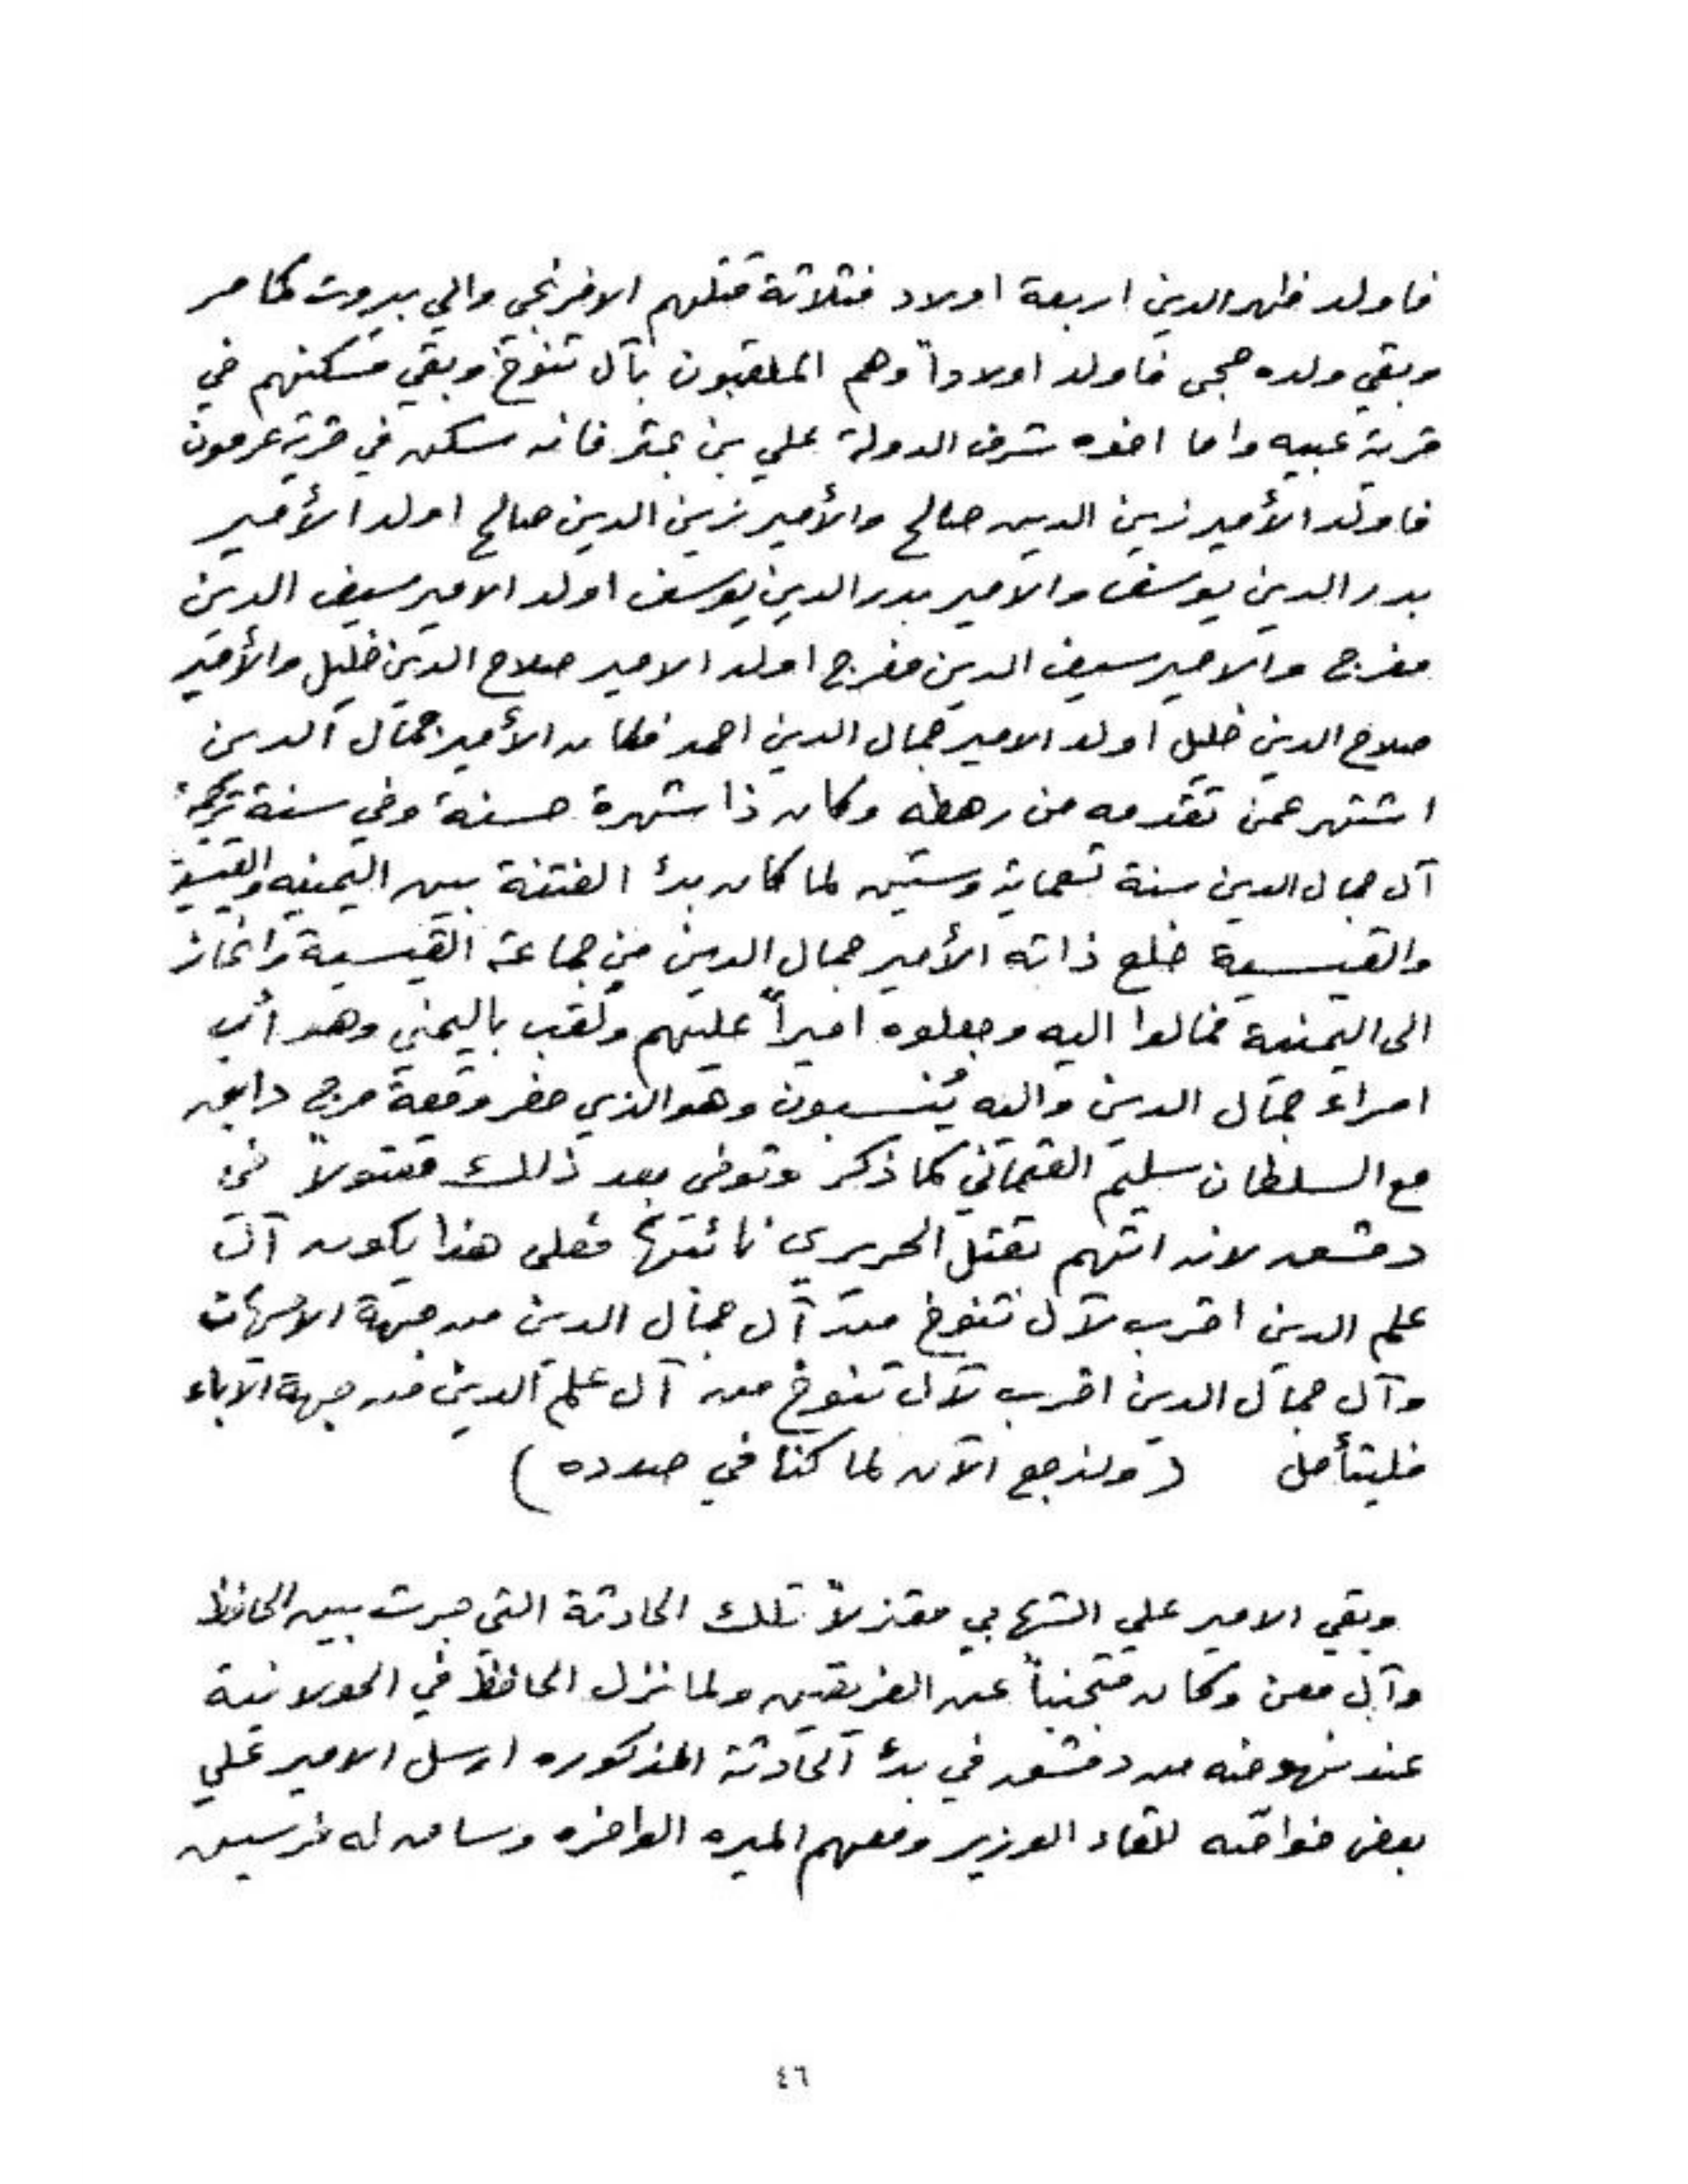 فاولد ظهر الدين اربعة اولاد فثلاثة قتلهم الافرنجي والي بيروت كما مر
وبقي ولده حجى فاولد اولاداً وهم الملقبون بآل تنوخ وبقي مسكنهم في
قرية عبيه واما اخوه شرف الدولة علي بن بحتر فانه سكن في قرية عرمون
فاولد الأمير زين الدين صالح والأمير زين الدين صالح اولد الأمير
بدر الدين يوسف والامير بدر الدين يوسف اولد الامير سيف الدين
مفرج والامير سيف الدين مفرج اولد الامير صلاح الدين خليل والأمير
صلاح الدين خليل اولد الامير جمال الدين احمد فكان الأمير جمال الدين
اشتهر عمن تقدمه من رهطه وكان ذا شهرة حسنة وفي سنة
آل جمال الدين سنة تسعماية وستين لما كان بدئ الفتنة بين اليمنيه والقيسية
والقيسية خلع ذاته الأمير جمال الدين من جماعة القيسية وانحاز
الى اليمنية فمالوا اليه وجعلوه اميراً عليهم ولقب باليمني وهو أب
امراء جمال الدين واليه يُنسبون وهو الذي حضر وقعة مرج دابق
مع السلطان سليم العثماني كما ذكر وتوفى بعد ذلك مقتولاً في
دمشق لانه اتهم بقتل الحريري نائبها فعلى هذا يكون آل
علم الدين اقرب لآل تنوخ من آل جمال الدين من جهة الامهات
وآل جمال الدين اقرب لآل تنوخ من آل علم الدين من جهة الآباء
فليتأمل ( ولنرجع الآن لما كنا في صدده )
وبقي الامير علي الشهابي معتزلاً تلك الحادثة التي جرت بين الحافظ
وآل معن وكان متجنباً عن الفريقين ولما نزل الحافظ في الحولانية
عند نهوضه من دمشق في بدئ الحادثة المذكوره ارسل الامير علي
بعض خواصّه للقاء الوزير ومعهم الميره الوافره وساق له فرسين
٤٦